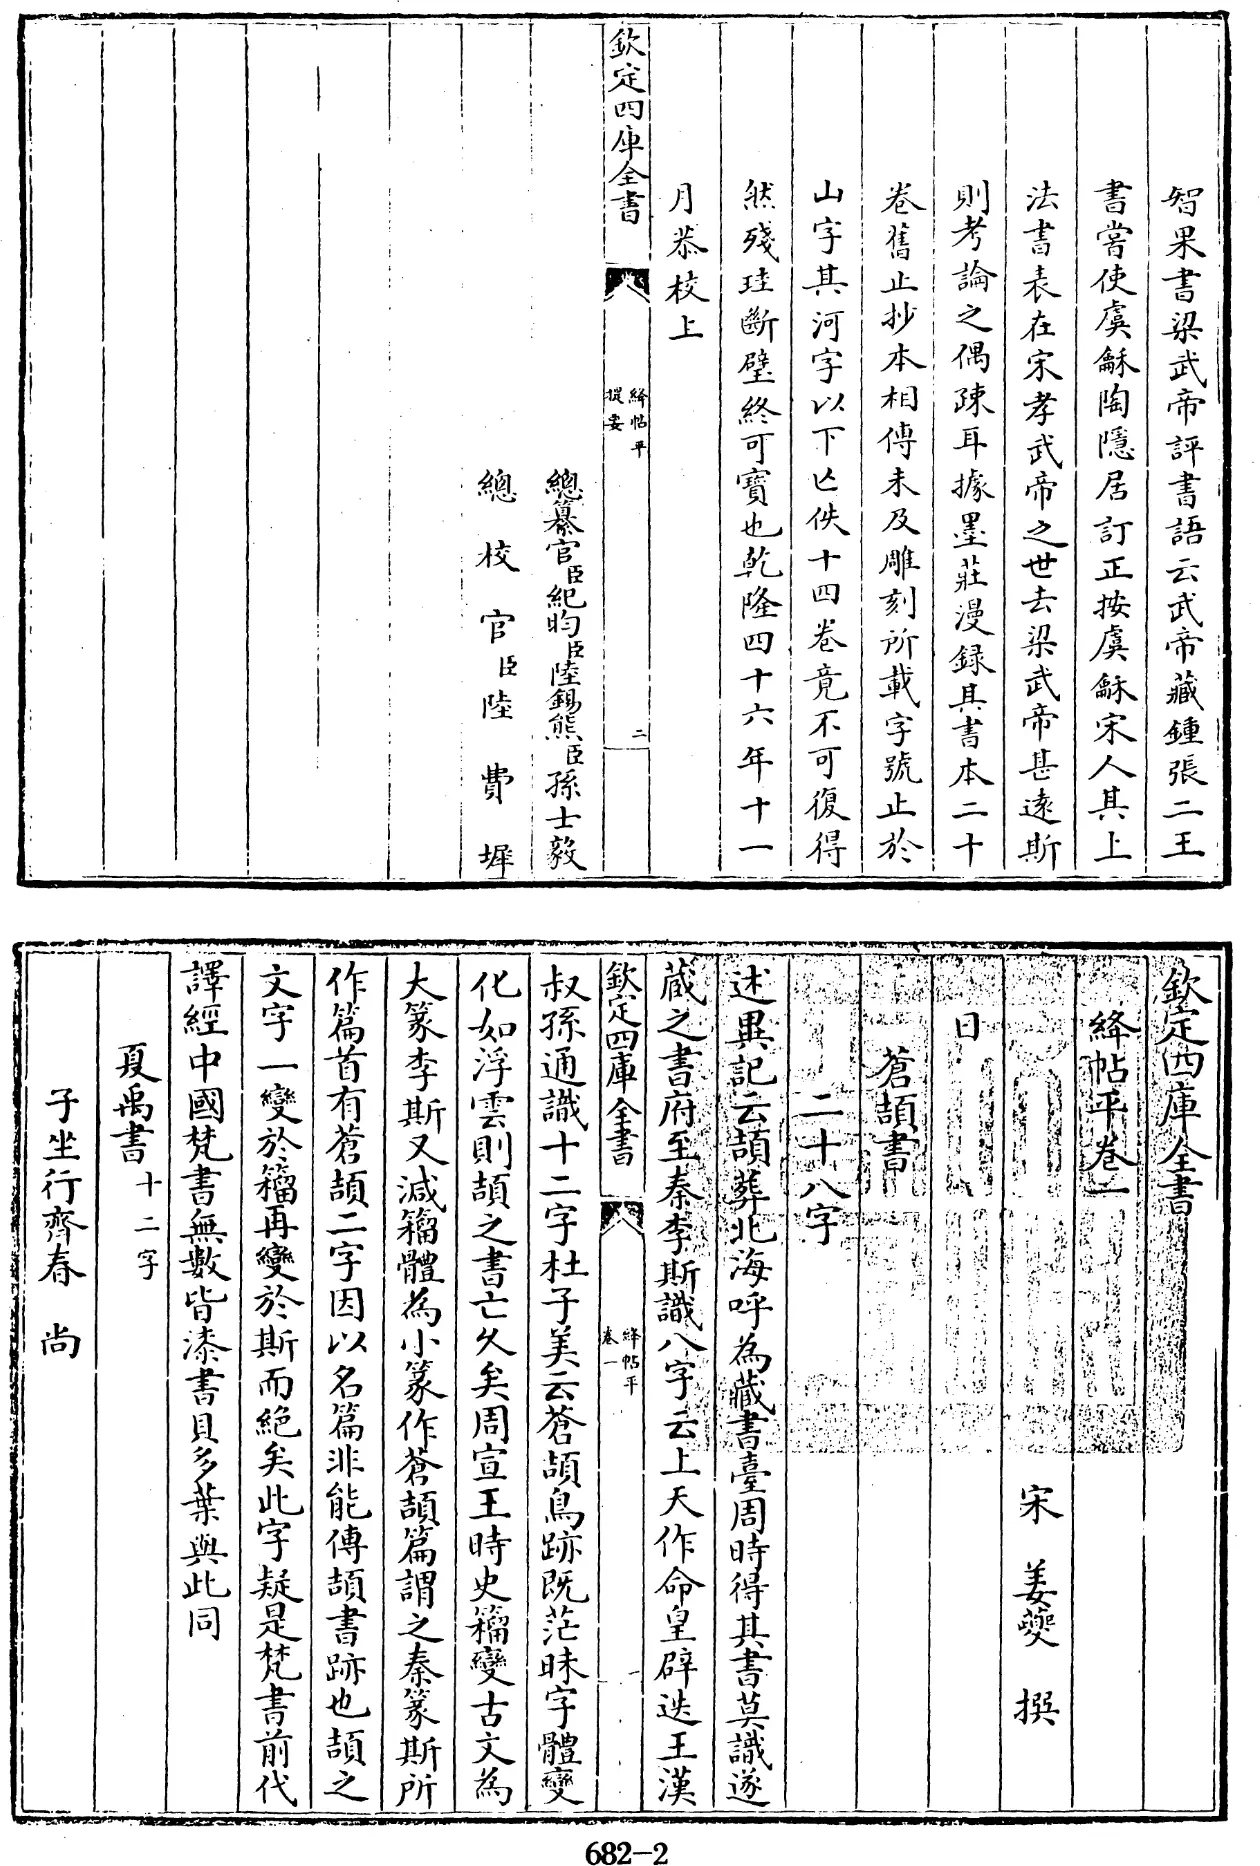 智果書梁武帝評書語云武帝藏鍾張二王
書嘗使虞龢陶隱居訂正按虞龢宋人其上
法書表在宋孝武帝之世去梁武帝甚遠斯
則考論之偶疎耳據墨莊漫録其書本二十
卷舊止抄本相傳未及雕刻所載字號止於
山字其河字以下亡佚十四卷竟不可復得
然殘珪斷璧終可寶也乾隆四十六年十一
月恭校上
欽定四庫全書
絳帖平
提要
二
總纂官臣紀昀臣陸錫熊臣孫士毅
總校官臣陸費墀
欽定四庫全書
絳帖平卷一
宋 姜夔 撰
日
蒼頡書
二十八字
述異記云頡葬北海呼為藏書臺周時得其書莫識遂
藏之書府至秦李斯識八字云上天作命皇辟迭王漢
欽定四庫全書
絳帖平
卷一
一
叔孫通識十二字杜子美云蒼頡鳥跡既茫昧字體變
化如浮雲則頡之書亡久矣周宣王時史籀變古文為
大篆李斯又減籀體為小篆作蒼頡篇謂之秦篆斯所
作篇首有蒼頡二字因以名篇非能傳頡書跡也頡之
文字一變於籀再變於斯而絶矣此字疑是梵書前代
譯經中國梵書無數皆漆書貝多葉與此同
夏禹書 十二字
子坐行齊春 尚
682-2